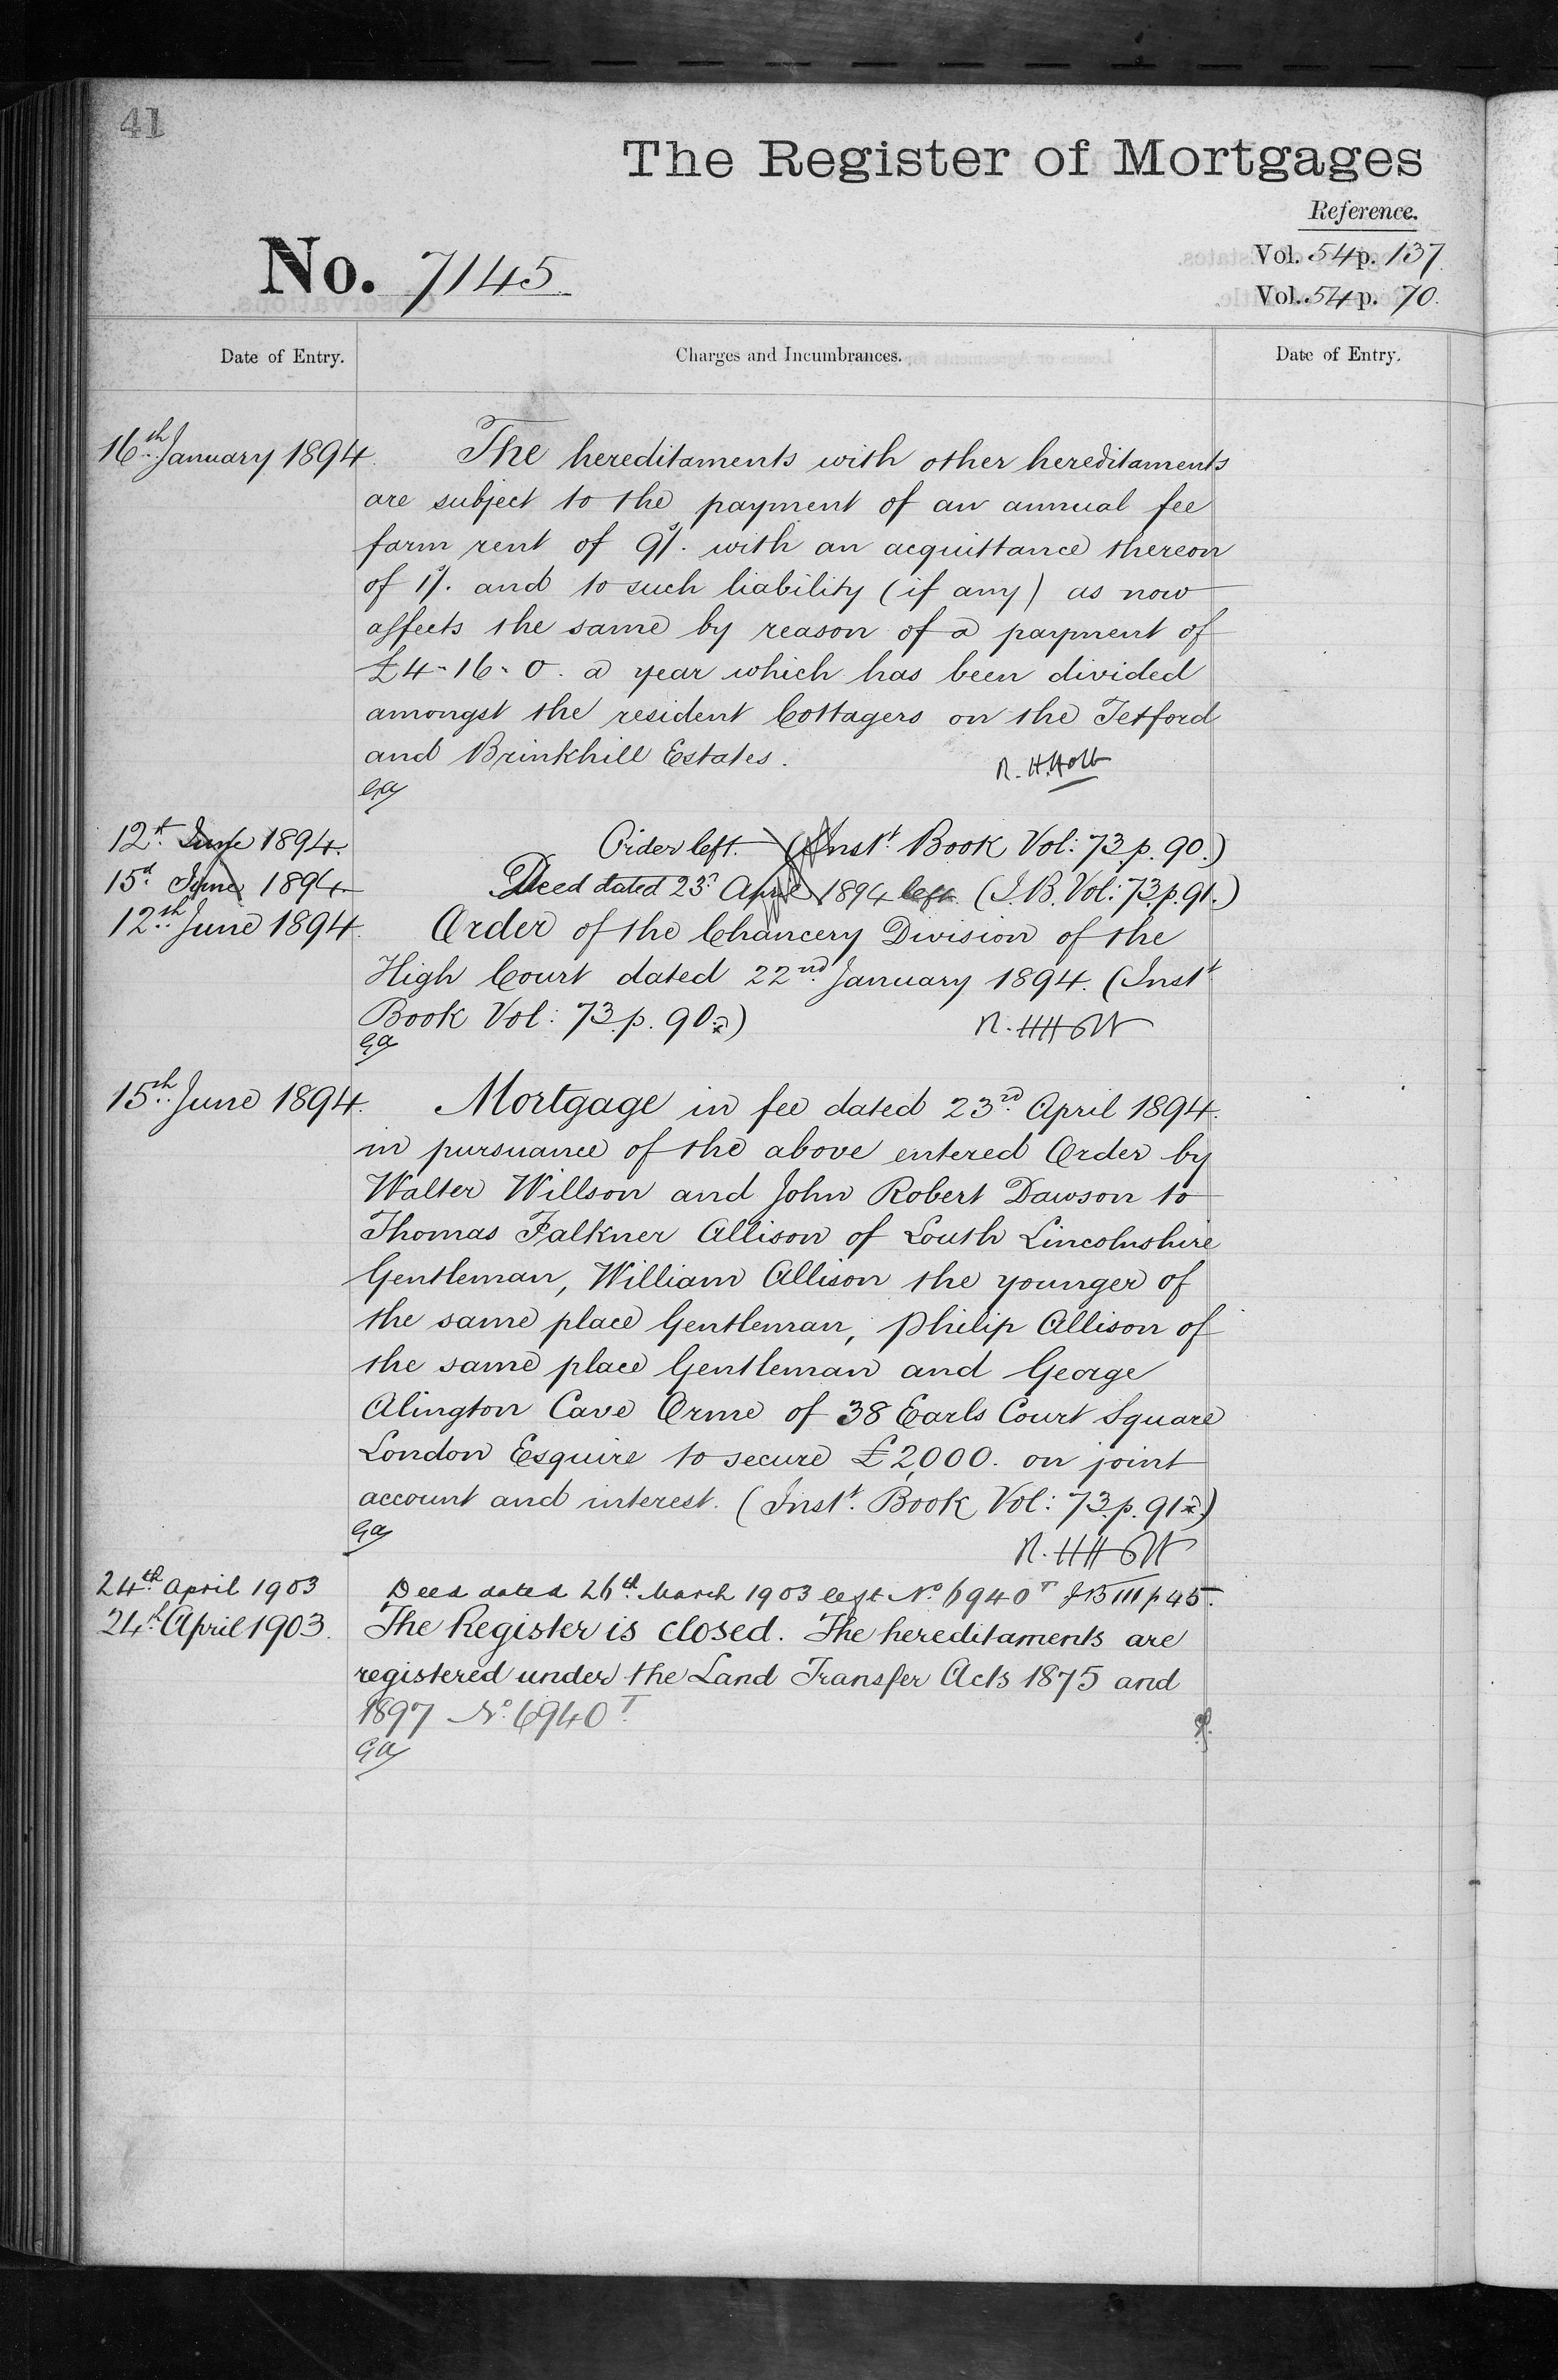 41
The Register of Mortgages
Reference.
No. 7145
Vol. 54 p. 137
Vol. 54 p. 70.
Date of Entry. Charges and Incumbrances. Date of Entry.
16th January 1894. The hereditaments with other hereditaments
are subject to the payment of an annual fee
farm rent of 9s/. with an acquittance thereon
of 1s/. and to such liability (if any) as now
affects the same by reason of a payment of
£4-16-0. a year which has been divided
amongst the resident Cottagers on the Tetford
and Brinkhill Estates.
R. H. Holt
GA
12th June 1894. Order left. (Inst. Book Vol: 73. p. 90.)
15th June 1894 Deed dated 23rd April 1894 left. (I.B. Vol: 73. p. 91.)
12th June 1894. Order of the Chancery Division of the
High Court dated 22nd January 1894. (Inst.
Book Vol: 73. p. 90.)
R. H. Holt
GA
15th June 1894. Mortgage in fee dated 23rd April 1894.
in pursuance of the above entered Order by
Walter Willson and John Robert Dawson to
Thomas Falkner Allison of Louth Lincolnshire
Gentleman, William Allison the younger of
the same place Gentleman, Philip Allison of
the same place Gentleman and George
Alington Cave Orme of 38 Earls Court Square
London Esquire to secure £2,000. on joint
account and interest. (Inst. Book Vol: 73. p. 91.)
GA
R. H. Holt
24th April 1903 Deed dated 26th March 1903 left No. 6940T IB 111 p 45.
24th April 1903. The Register is closed. The hereditaments are
registered under the Land Transfer Acts 1875 and
1897 No. 6940T.
GA